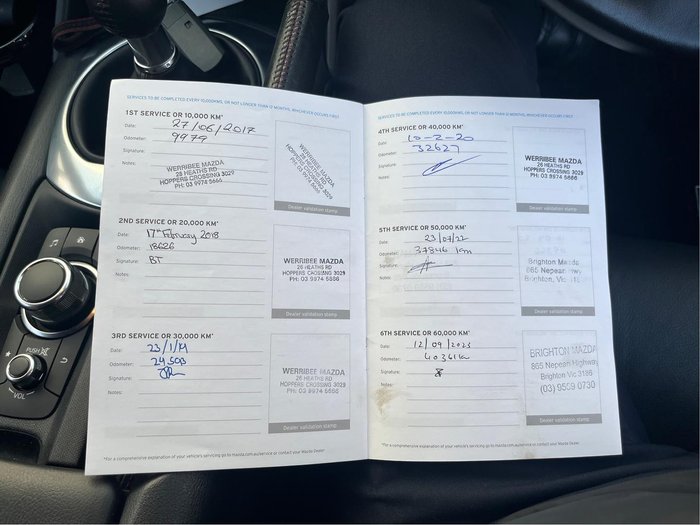 SERVICES TO BE COMPLETED EVERY 10,000KMS, OR NOT LONGER THAN 12 MONTHS, WHICHEVER OCCURS FIRST
1ST SERVICE OR 10,000 KM*
Date: 27/06/2017
Odometer: 9979
Signature:
Notes:
WERRIBEE MAZDA
26 HEATHS RD
HOPPERS CROSSING 3029
PH: 03 9974 5666
WERRIBEE MAZDA
26 HEATHS RD
HOPPERS CROSSING 3029
PH: 03 9974 5666
Dealer validation stamp
2ND SERVICE OR 20,000 KM*
Date: 17th February 2018
Odometer: 18626
Signature: BT
Notes:
WERRIBEE MAZDA
26 HEATHS RD
HOPPERS CROSSING 3029
PH: 03 9974 5666
Dealer validation stamp
3RD SERVICE OR 30,000 KM*
Date: 23/1/19
Odometer: 24503
Signature:
Notes:
WERRIBEE MAZDA
26 HEATHS RD
HOPPERS CROSSING 3029
PH: 03 9974 5666
Dealer validation stamp
*For a comprehensive explanation of your vehicle's servicing go to mazda.com.au/service or contact your Mazda Dealer
SERVICES TO BE COMPLETED EVERY 10,000KMS, OR NOT LONGER THAN 12 MONTHS, WHICHEVER OCCURS FIRST
4TH SERVICE OR 40,000 KM*
Date: 10-2-20
Odometer: 32627
Signature:
Notes:
WERRIBEE MAZDA
26 HEATHS RD
HOPPERS CROSSING 3029
PH: 03 9974 5666
Dealer validation stamp
5TH SERVICE OR 50,000 KM*
Date: 23/07/22
Odometer: 37846 km
Signature:
Notes:
Brighton Mazda
865 Nepean
Brighton, Vic
Dealer validation stamp
6TH SERVICE OR 60,000 KM*
Date: 12/09/2023
Odometer: 40361km
Signature:
Notes:
BRIGHTON MAZDA
865 Nepean Highway
Brighton Vic 3186
(03) 9599 0730
Dealer validation stamp
*For a comprehensive explanation of your vehicle's servicing go to mazda.com.au/service or contact your Mazda Dealer
PUSH
VOL